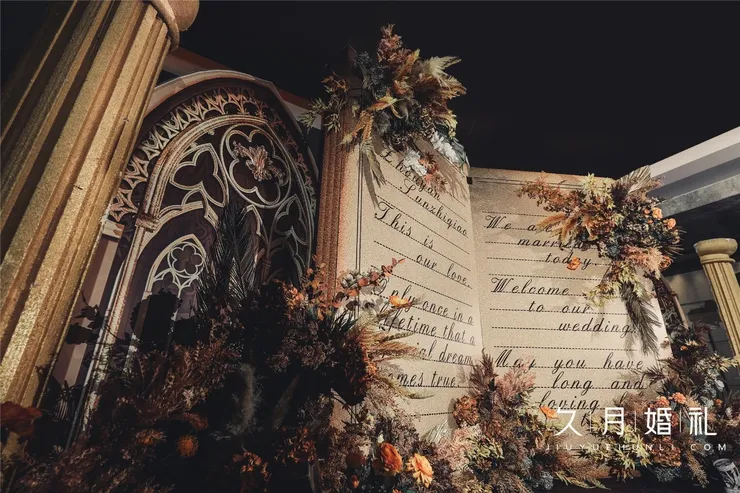 Sunzhiqiao
This is
our love.
only once in a
lifetime that a
dream
comes true.
We are
married
today.
Welcome
to our
wedding
May you have
long and
loving
久月婚礼
JIUYUEHUNLI.COM